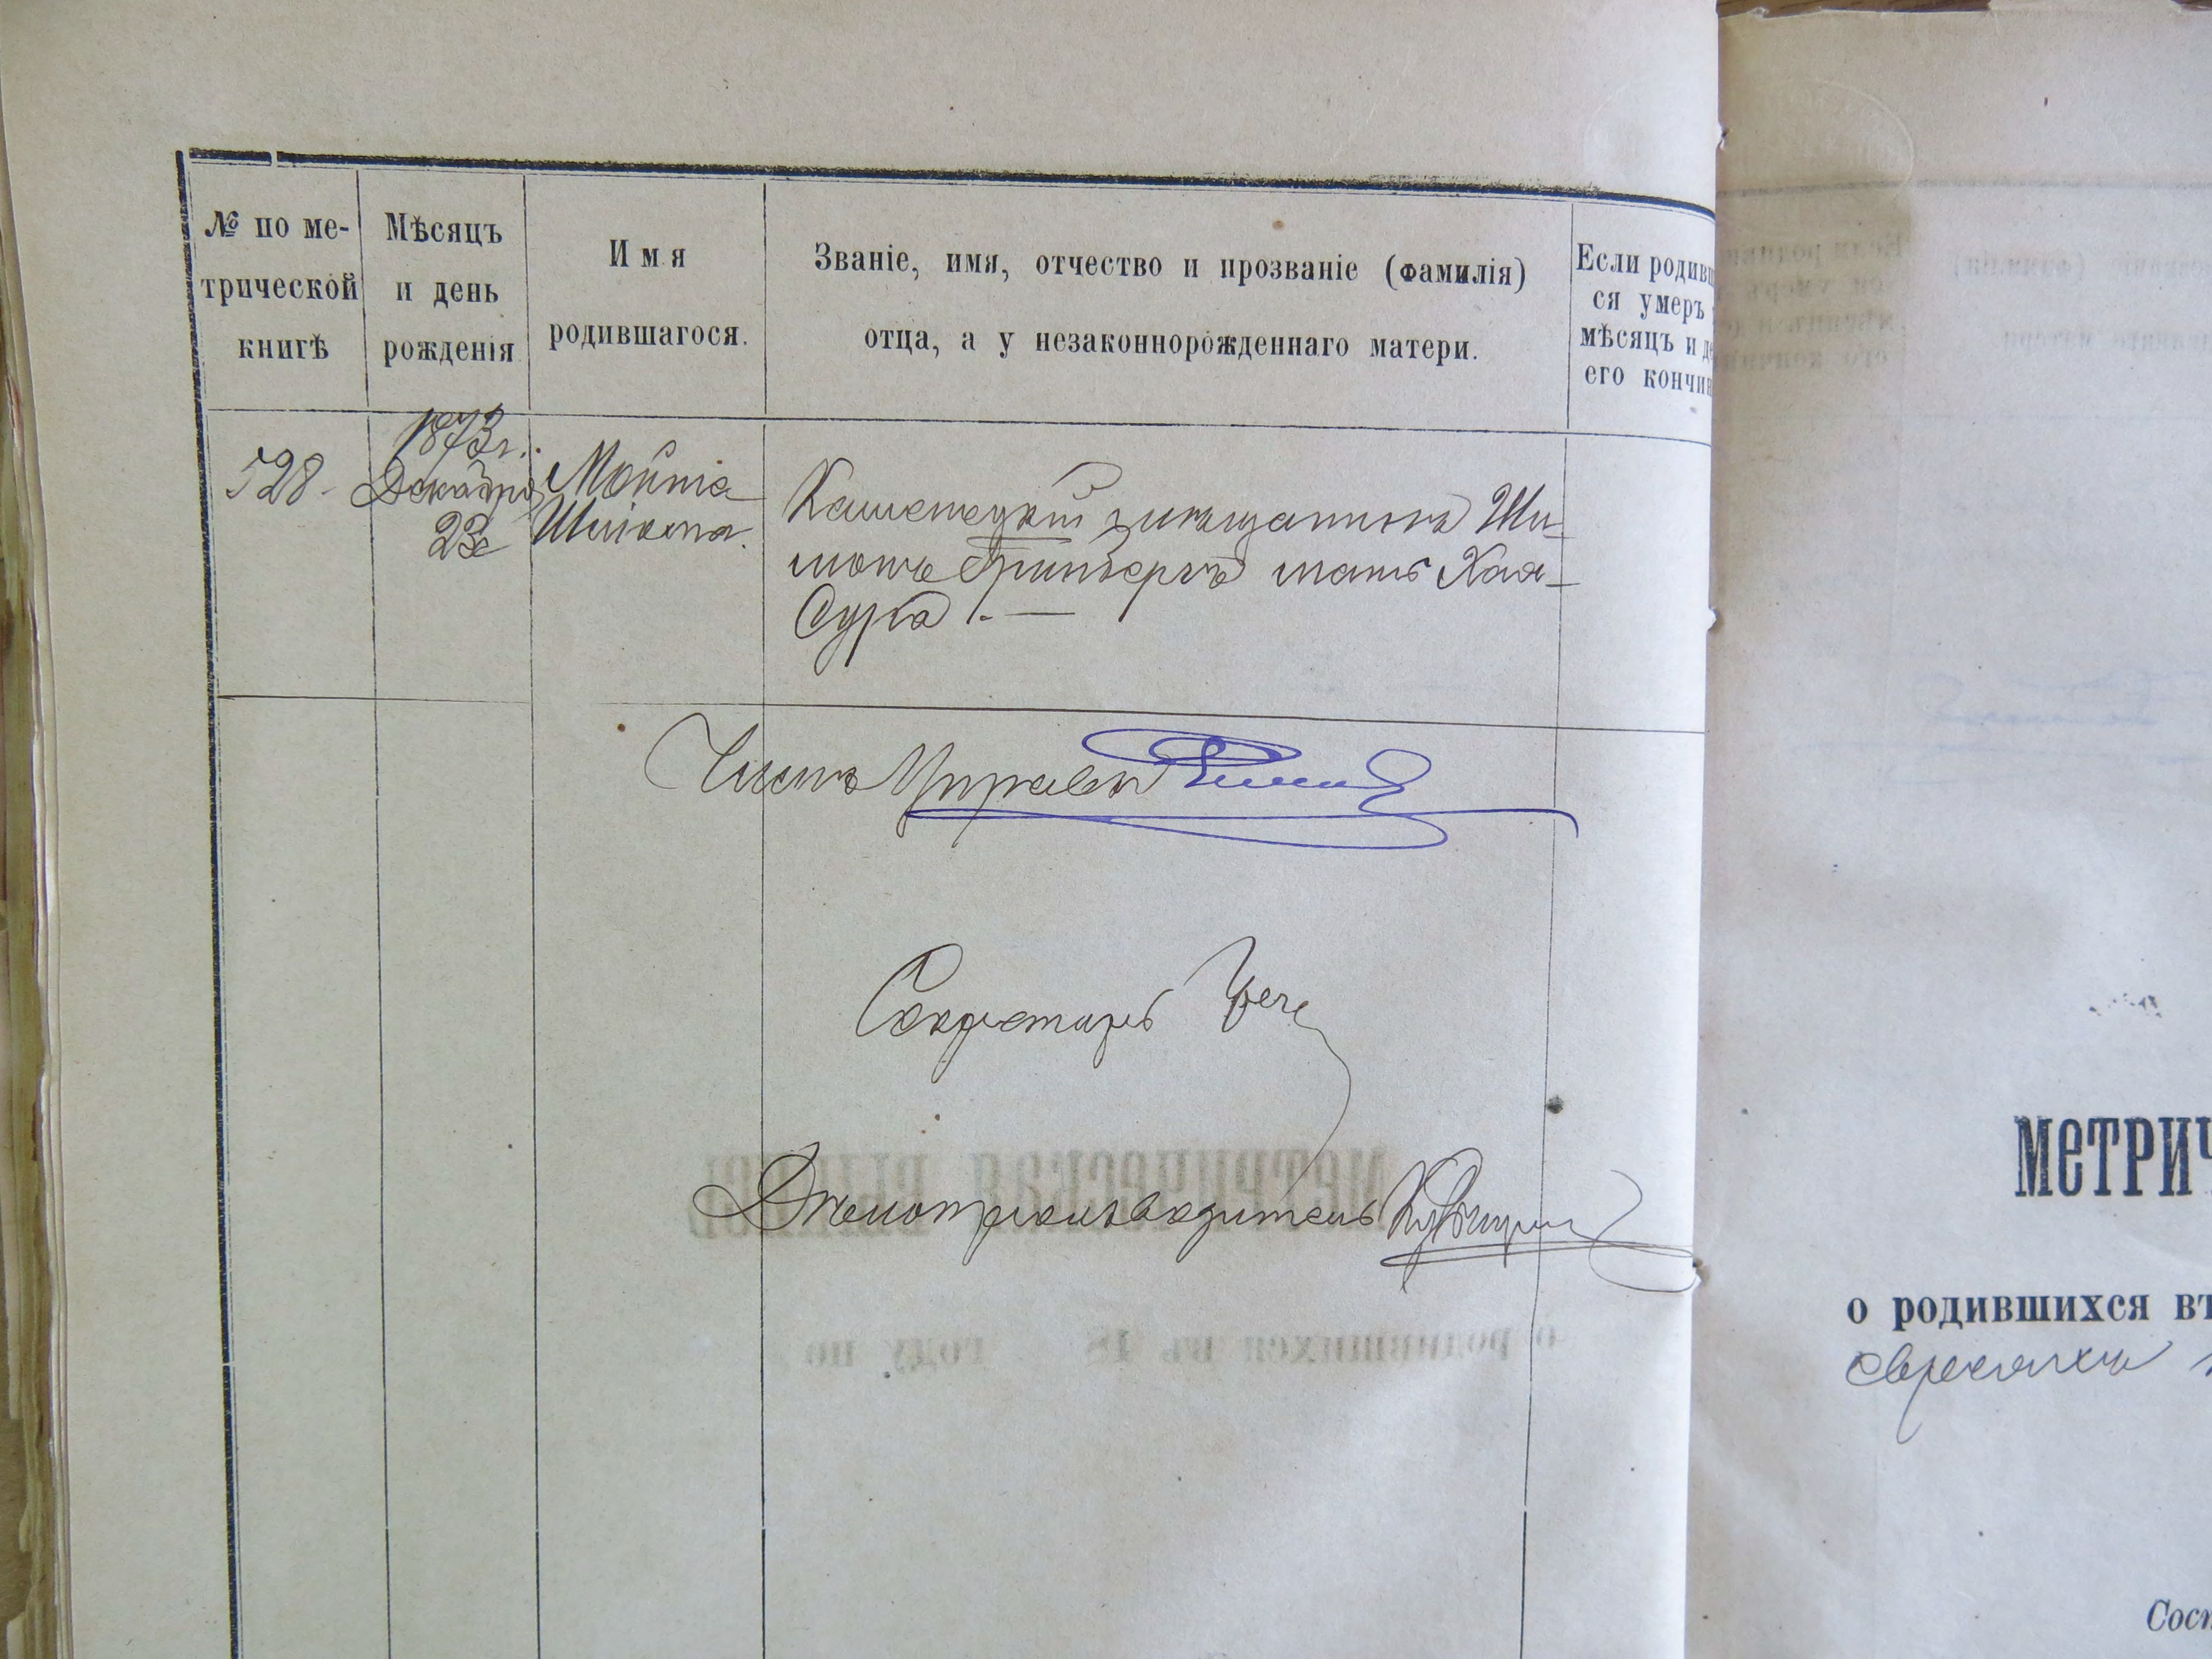 № по ме-
трической
книгѣ
Мѣсяцъ
и день
рожденія
Имя
родившагося.
Званіе, имя, отчество и прозваніе (фамилія)
отца, а у незаконнорожденнаго матери.
Если родивш
ся умеръ
мѣсяцъ и де
его кончин
528.
1873 г.
Декабря
23
Шліома.
мѣщанинъ Ши-
монъ Гринбергъ мать Хая-
Сура. —
Членъ Управы
Секретарь
Дѣлопроизводитель
МЕТРИЧ
о родившихся въ
евреяхъ
Сост